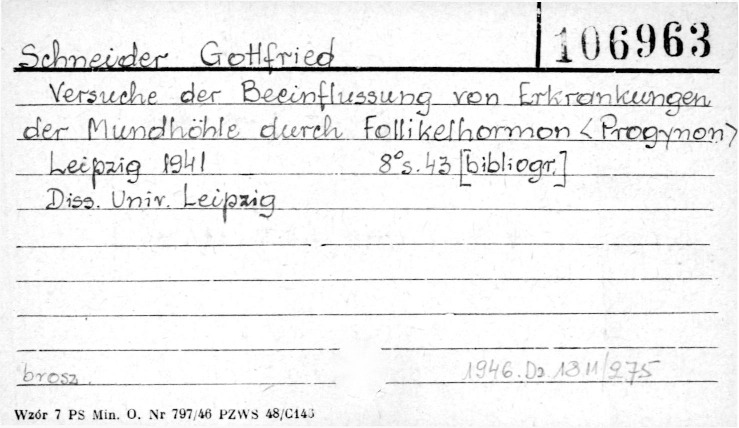 106963
Schneider Gottfried
Versuche der Beeinflussung von Erkrankungen
der Mundhöhle durch Follikelhormon <Progynon>
Leipzig 1941 8° s. 43 [bibliogr.]
Diss. Univ. Leipzig
brosz. 1946. Dz
Wzór 7 PS Min. O. Nr 797/46 PZWS 48/C145